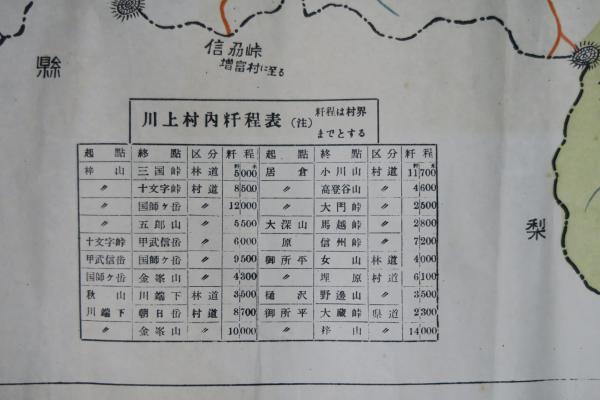 縣
信州峠
増富村に至る
梨
川上村內粁程表 (注) 粁程は村界
までとする
起點 終點 区分 粁程 起點 終點 区分 粁程
粁 米 粁 米
梓山 三国峠 林道 5 000 居倉 小川山 村道 11 700
〃 十文字峠 村道 8 500 〃 高登谷山 〃 4 600
〃 国師ヶ岳 〃 12 000 〃 大門峠 〃 2 500
〃 五郎山 〃 5 500 大深山 馬越峠 〃 2 800
十文字峠 甲武信岳 〃 6 000 原 信州峠 〃 7 200
甲武信岳 国師ヶ岳 〃 9 500 御所平 女山 林道 4 000
国師ヶ岳 金峯山 〃 4 300 〃 埋原 村道 6 100
秋山 川端下 林道 3 500 樋沢 野邊山 〃 3 500
川端下 朝日岳 村道 8 700 御所平 大蔵峠 県道 2 300
〃 金峯山 〃 10 000 〃 梓山 〃 14 000